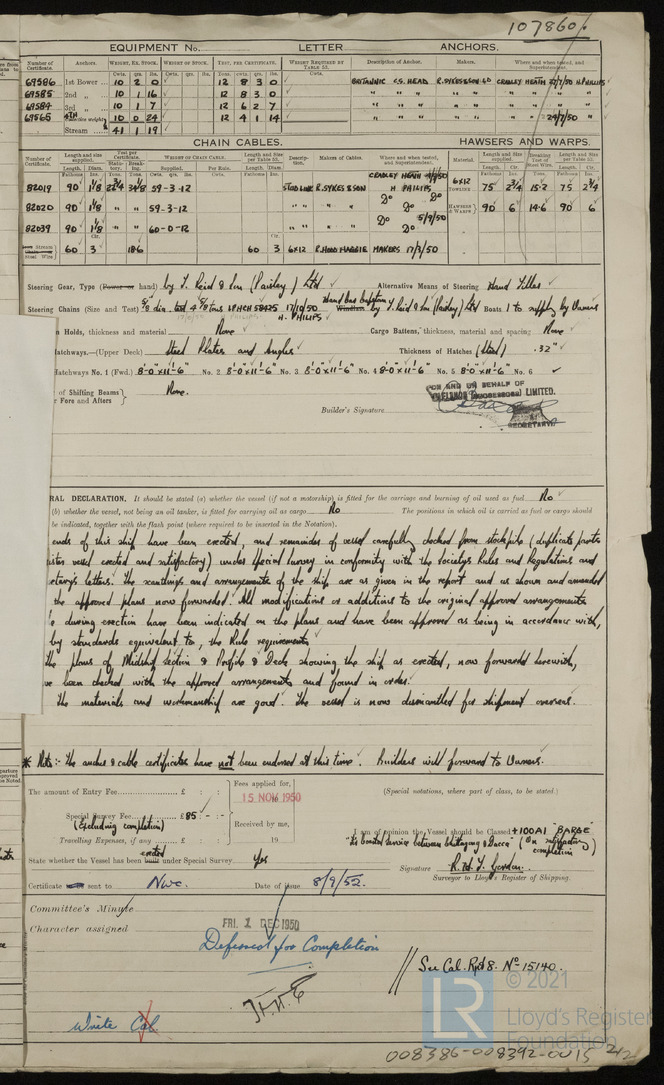 107860
EQUIPMENT No. LETTER ANCHORS.
Number of Certificate. Anchors. WEIGHT, EX. STOCK. WEIGHT OF STOCK. TEST, PER CERTIFICATE. WEIGHT REQUIRED BY TABLE 53. Description of Anchor. Makers. Where and when tested, and Superintendent.
Cwts. qrs. lbs. Cwts. qrs. lbs. Tons. cwts. qrs. lbs. Cwts.
69586 1st Bower 10 2 0 12 8 3 0 BRITANNIC C.S. HEAD R. SYKES & SON LD CRADLEY HEATH 27/7/50 H. PHILIPS
69585 2nd „ 10 1 16 12 8 3 0 " " " " " " " "
69584 3rd „ 10 1 7 12 6 2 7 " " " " " " " "
69565 4TH 10 0 24 12 4 1 14 " " " " " " 24/7/50 "
Stream 41 1 19
CHAIN CABLES. HAWSERS AND WARPS.
Number of Certificate. Length and size supplied. Test per Certificate. WEIGHT OF CHAIN CABLE. Length and Size per Table 53. Description. Makers of Cables. Where and when tested, and Superintendent. Material. Length and Size supplied. Breaking Test of Steel Wire. Length and Size per Table 53.
Length. Diam. Statutory. Breaking. Supplied. Per Rule. Length. Diam.
Fathoms Ins. Tons. Tons. Cwts. qrs. lbs. Fathoms Ins. Fathoms Cir. Tons. Fathoms Cir.
82019 90 1⅛ 22¾ 34⅛ 59-3-12 STUD LINK R. SYKES & SON CRADLEY HEATH H PHILIPS 6x12 TOWLINE 75 2¾ 15·2 75 2¾
82020 90 1⅛ " " 59-3-12 " " " Do Do HAWSERS & WARPS 90 6 14·6 90 6
82039 90 1⅛ " " 60-0-12 " " " Do 5/9/50 Do
Stream Steel Wire 60 3 18·6 60 3 6x12 R. HOOD HAGGIE MAKERS 17/7/50
Steering Gear, Type (Power or hand) by T. Reid & Son (Paisley) Ltd Alternative Means of Steering Hand Tiller
Steering Chains (Size and Test) ⅝ dia. test 4⅝ tons LPHCH 58425 17/10/50 H. PHILIPS Windlass Hand bar capstan by T. Reid & Son (Paisley) Ltd Boats 1 to supply by Owners
Holds, thickness and material None Cargo Battens, thickness, material and spacing None
Hatchways.—(Upper Deck) Steel Plates and Angles Thickness of Hatches (Steel) .32"
Hatchways No. 1 (Fwd.) 8'-0"x11'-6" No. 2 8'-0"x11'-6" No. 3 8'-0"x11'-6" No. 4 8'-0"x11'-6" No. 5 8'-0"x11'-6" No. 6
of Shifting Beams
r Fore and Afters } None.
FOR AND ON BEHALF OF
LIMITED.
SECRETARY
Builder's Signature
RAL DECLARATION. It should be stated (a) whether the vessel (if not a motorship) is fitted for the carriage and burning of oil used as fuel No
(b) whether the vessel, not being an oil tanker, is fitted for carrying oil as cargo No The positions in which oil is carried as fuel or cargo should
be indicated, together with the flash point (where required to be inserted in the Notation).
ends of this ship have been erected, and remainder of vessel carefully checked from stockpile (duplicate parts
sister vessel erected and satisfactory) under special survey in conformity with the Society's Rules and Regulations and
etary's letters. The scantlings and arrangements of the ship are as given in the report and as shown and amended
the approved plans now forwarded. All modifications or additions to the original approved arrangements
during erection have been indicated on the plans and have been approved as being in accordance with,
by standards equivalent to, the Rule requirements
the plans of Midship Section & Profile & Deck showing the ship as erected, now forwarded herewith,
have been checked with the approved arrangements and found in order.
The materials and workmanship are good. The vessel is now dismantled for shipment overseas.
* Note:- The anchor & cable certificates have not been endorsed at this time. Builders will forward to Owners.
The amount of Entry Fee £ : : Fees applied for,
15 NOV 1950 (Special notations, where part of class, to be stated.)
Special Survey Fee £85 : - : -
(Excluding completion) Received by me,
Travelling Expenses, if any £ : : 19
I am of opinion the Vessel should be Classed +100A1 "BARGE"
"For limited service between Chittagong & Dacca" (On satisfactory completion)
State whether the Vessel has been erected built under Special Survey Yes
Signature R. W. L. Gordon.
Surveyor to Lloyd's Register of Shipping.
Certificate sent to Nwc. Date of issue 8/9/52.
Committee's Minute
Character assigned FRI. 1 DEC 1950
Deferred for Completion
See Cal. Rpt 8. No 15140.
Write Cal
© 2021
LR
Lloyd's Register
Foundation
008386-008392-0015 2/2